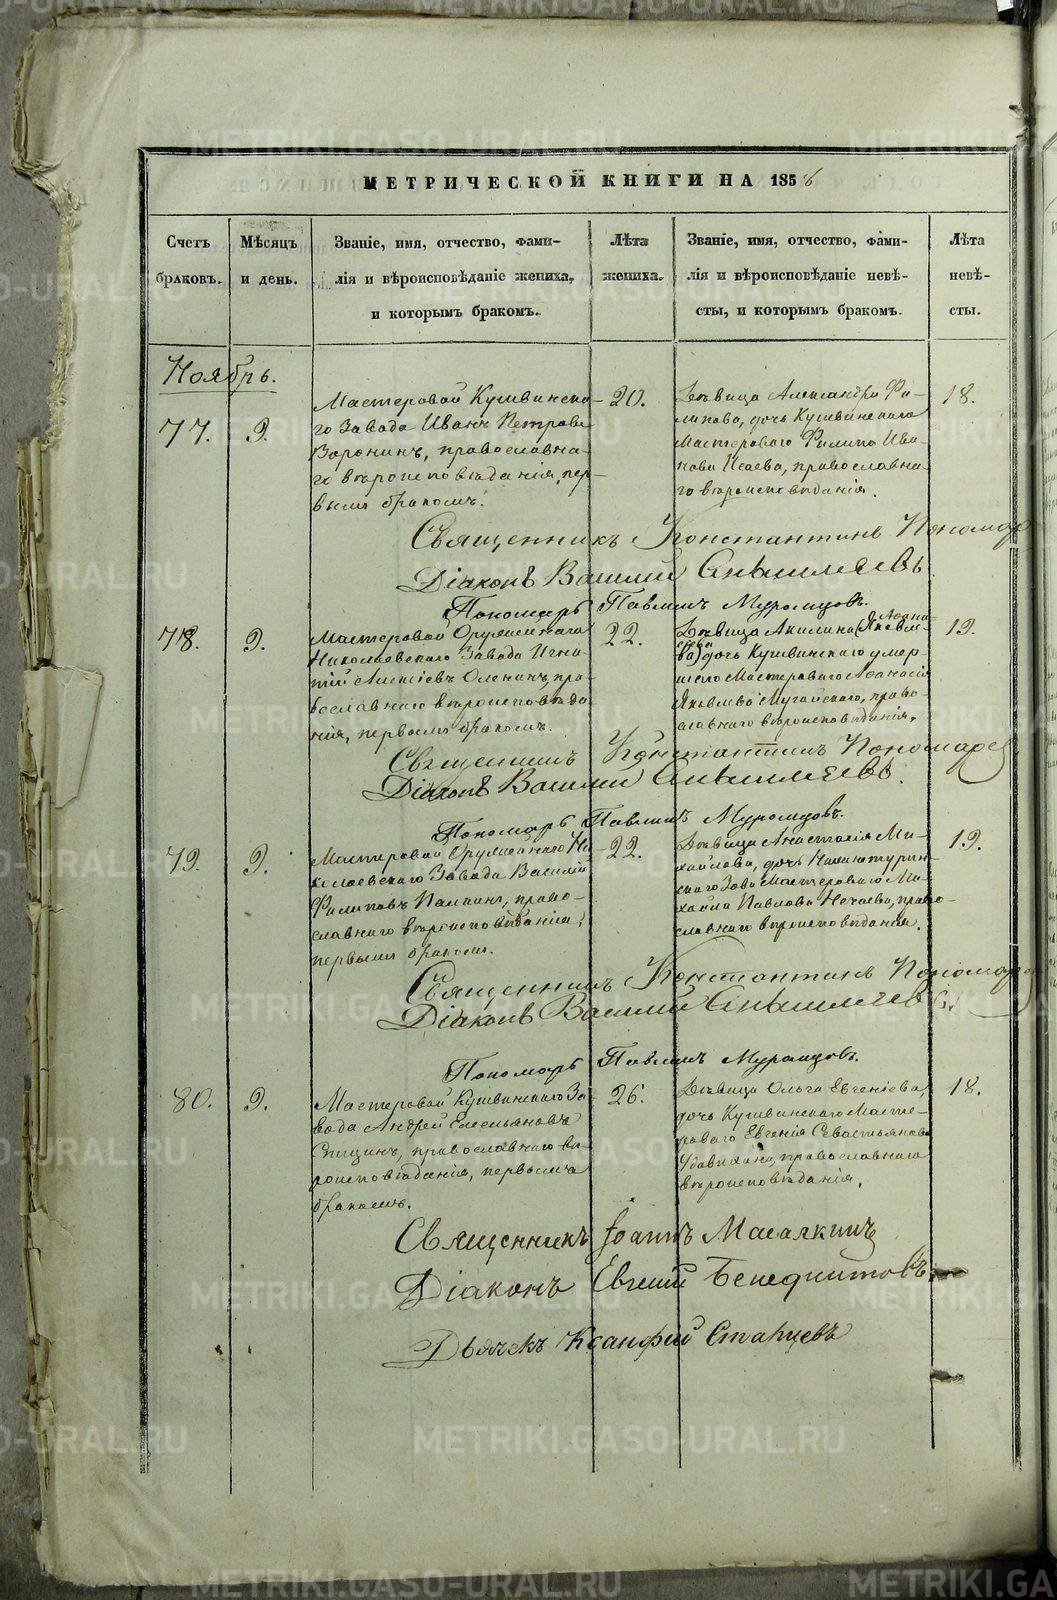 МЕТРИЧЕСКОЙ КНИГИ НА 1856
Счетъ браковъ.
Мѣсяцъ и день.
Званіе, имя, отчество, фами-
лія и вѣроисповѣданіе жениха,
и которымъ бракомъ.
Лѣта жениха.
Званіе, имя, отчество, фами-
лія и вѣроисповѣданіе невѣ-
сты, и которымъ бракомъ.
Лѣта невѣ-
сты.
Ноябрь.
77.
9.
Мастеровой Кушвинска-
го Завода Иванъ Петровъ
Воронинъ, православна-
го вѣроисповѣданія, пер-
вымъ бракомъ.
20.
Дѣвица Александра Фи-
липова, дочь Кушвинскаго
Мастероваго Филипа Ива-
нова Исаева, православна-
го вѣроисповѣданія.
18.
Священникъ Константинъ Пономар
Діаконъ Василій
Пономарь Павлинъ Муромцовъ.
78.
9.
Мастеровой Оружейнаго
Николаевскаго Завода Игна-
тій Алексіевъ Оленинъ, пра-
вославнаго вѣроисповѣда-
нія, первымъ бракомъ.
22.
Дѣвица Акилина
дочь Кушвинскаго умер-
шаго Мастероваго Афанасія
Яковлева право-
славнаго вѣроисповѣданія.
19.
Священникъ Константинъ Пономарев
Діаконъ Василій
Пономарь Павлинъ Муромцовъ.
79.
9.
Мастеровой Оружейнаго Ни-
колаевскаго Завода Василій
Филиповъ Палкинъ, право-
славнаго вѣроисповѣданія,
первымъ бракомъ.
22.
Дѣвица Анастасія Ми-
хайлова, дочь Нижнетурин-
скаго Зав. Мастероваго Ми-
хайла Павлова Нечаева, право-
славнаго вѣроисповѣданія.
19.
Священникъ Константинъ Пономарев
Діаконъ Василій
Пономарь Павлинъ Муромцовъ.
80.
9.
Мастеровой Кушвинскаго За-
вода Андрей Емельяновъ
Спицинъ, православнаго вѣ-
роисповѣданія, первымъ
бракомъ.
26.
Дѣвица Ольга Евгеніева,
дочь Кушвинскаго Масте-
роваго Евгенія Севостьянова
православнаго
вѣроисповѣданія.
18.
Священникъ Іоаннъ Масалкинъ
Діаконъ Евгеній Бенедиктовъ
Дьячекъ Ксанфій Старцевъ
METRIKI.GASO-URAL.RU